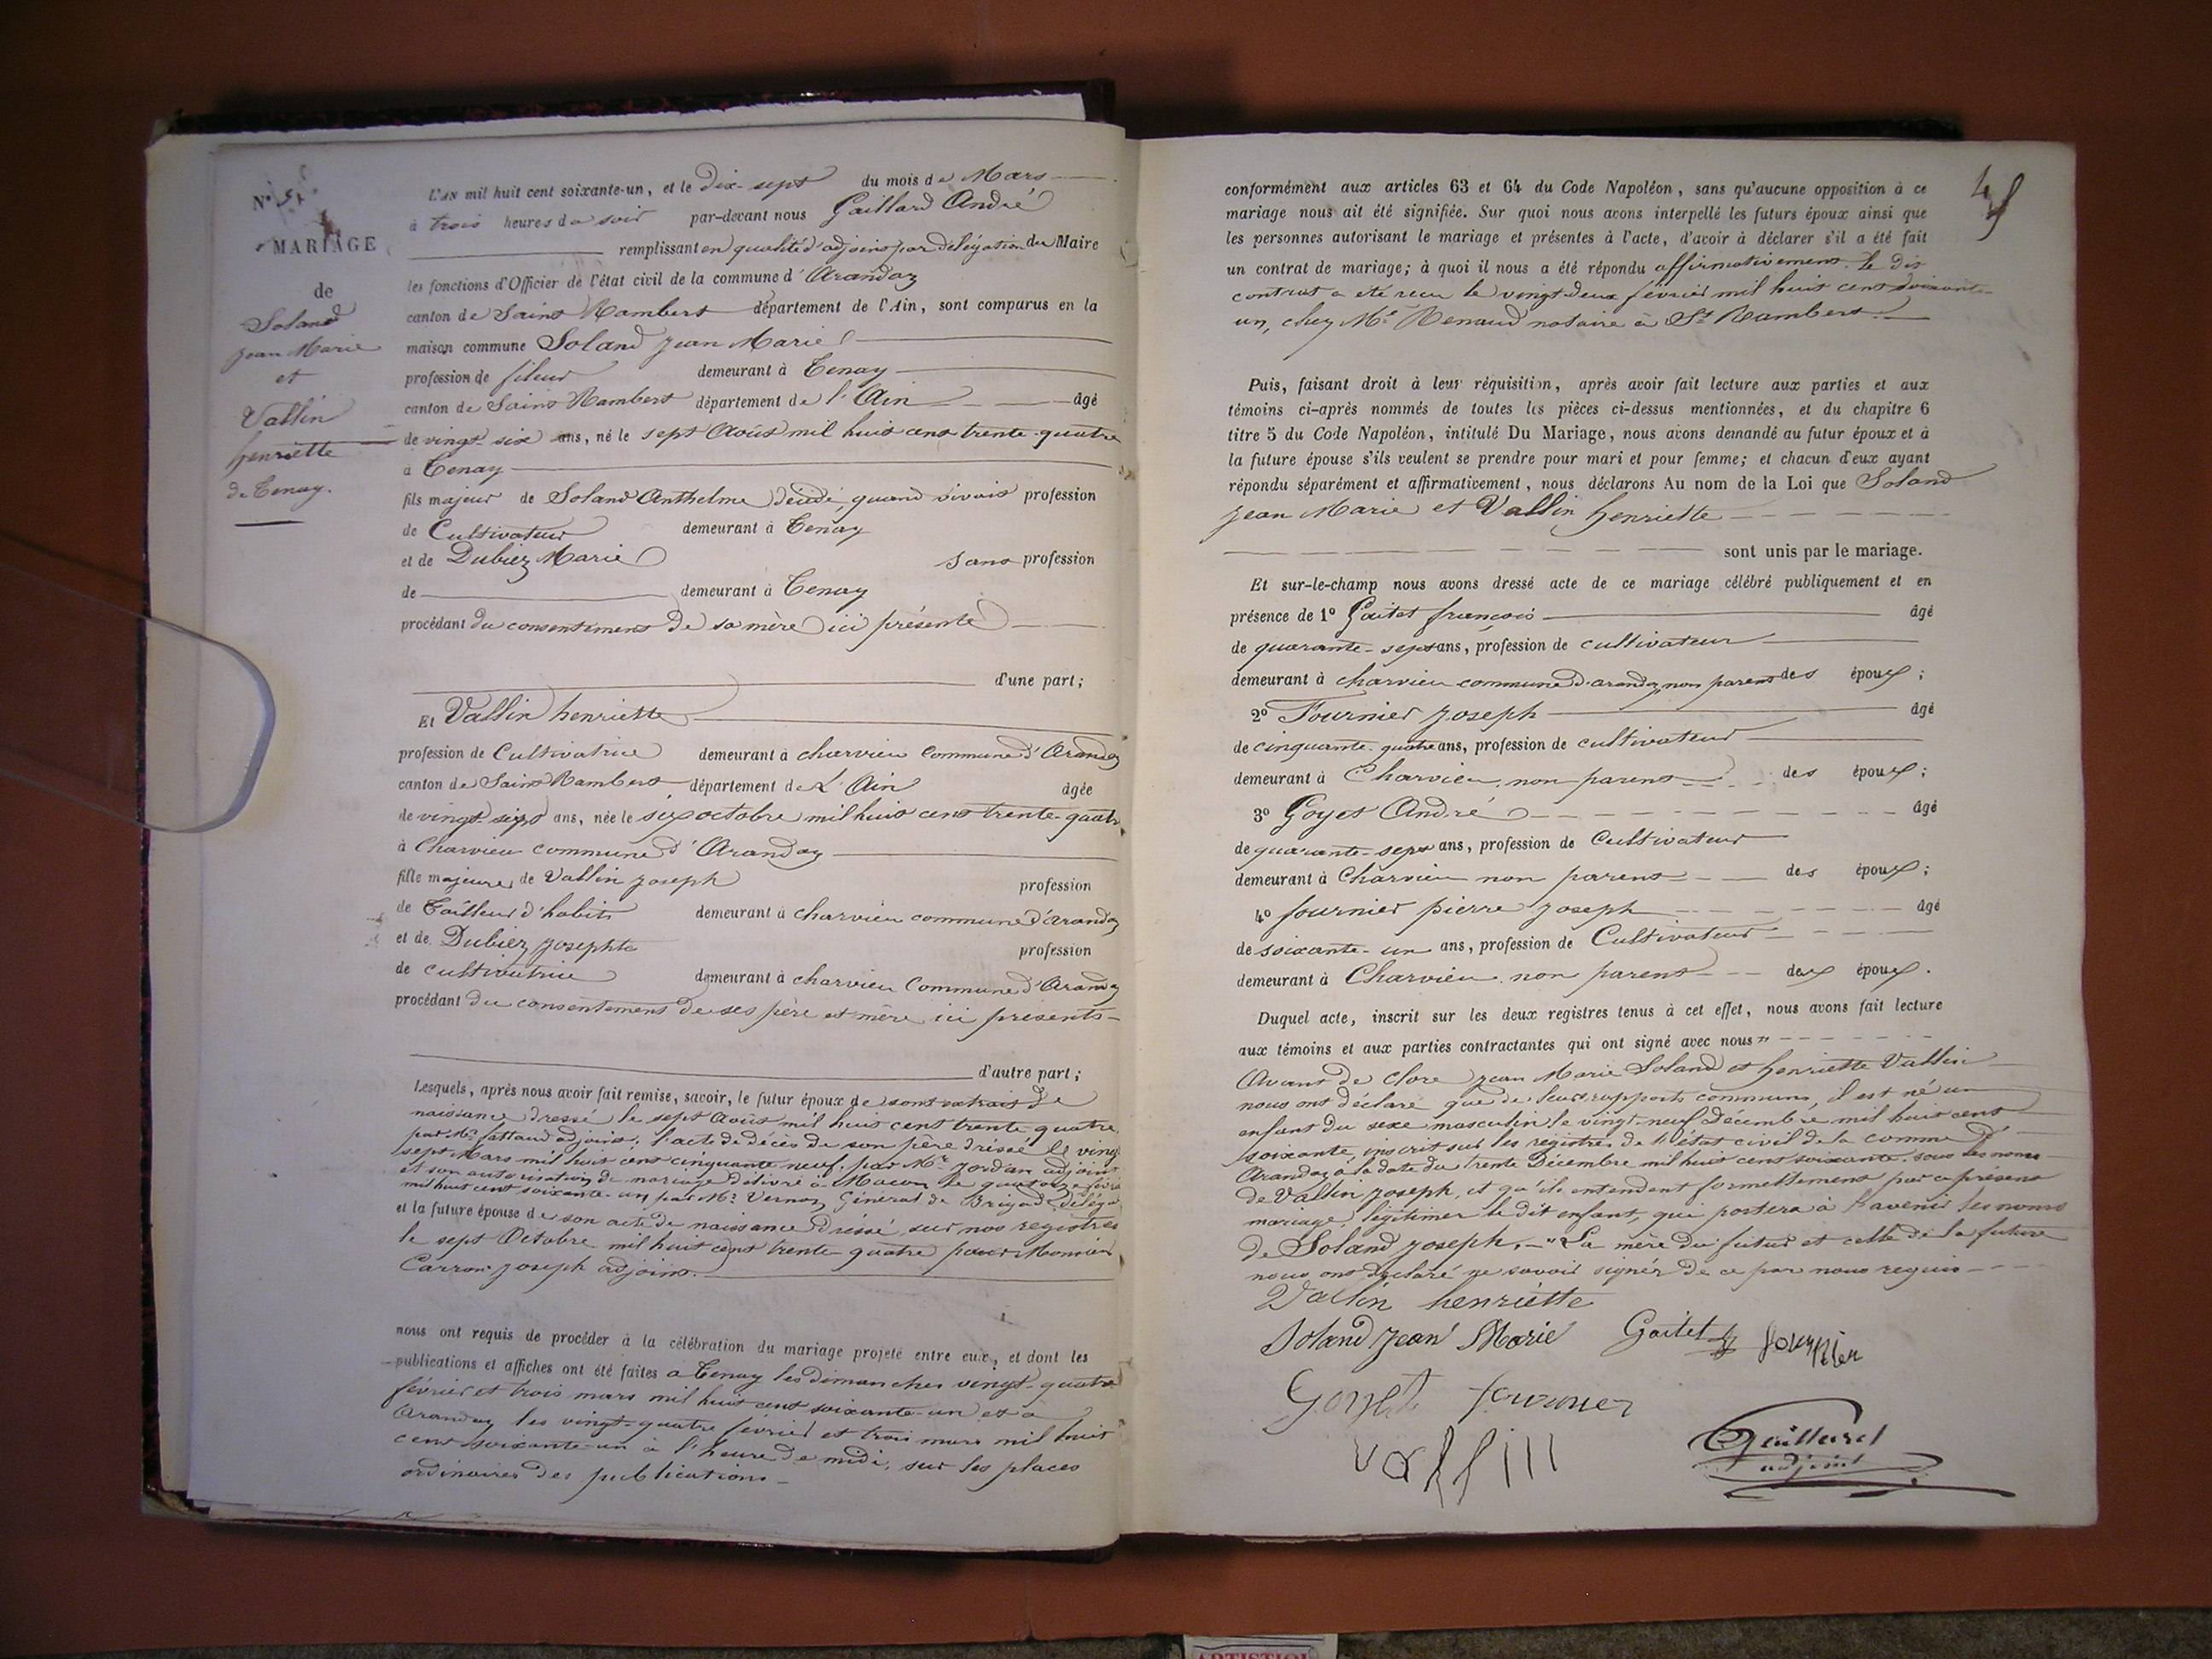 N° 5
MARIAGE
de
Soland
Jean Marie
et
Vallin
henriette
de Tenay.
L'AN mil huit cent soixante-un, et le dix-sept du mois de Mars
à trois heures du soir par-devant nous Gaillard André
remplissant en qualité d'adjoint par délégation du Maire
les fonctions d'Officier de l'état civil de la commune d'Arandaz
canton de Saint Rambert département de l'Ain, sont comparus en la
maison commune Soland Jean Marie
profession de fileur demeurant à Tenay
canton de Saint Rambert département de l'Ain âgé
de vingt-six ans, né le sept Août mil huit cent trente-quatre
à Tenay
fils majeur de Soland Anthelme décédé, quand vivait profession
de Cultivateur demeurant à Tenay
et de Dubiez Marie sans profession
de demeurant à Tenay
procédant du consentement de sa mère ici présente
d'une part;
Et Vallin henriette
profession de Cultivatrice demeurant à charvieu Commune d'Arandaz
canton de Saint Rambert département de L'Ain âgée
de vingt-sept ans, née le six octobre mil huit cent trente-quatre
à Charvieu commune d'Arandaz
fille majeure de Vallin Joseph profession
de Tailleur d'habits demeurant à charvieu commune d'arandaz
et de Dubiez Josephte profession
de cultivatrice demeurant à charvieu Commune d'Arandaz
procédant du consentement de ses père et mère ici présents
d'autre part;
Lesquels, après nous avoir fait remise, savoir, le futur époux de son extrait de
naissance dressé le sept Août mil huit cent trente quatre
par Mr. adjoint, l'acte de décès de son père dressé le vingt
sept Mars mil huit cent cinquante neuf, par Mr. Jordan adjoint
et son autorisation de mariage délivré à Macon le quatorze février
mil huit cent soixante-un par Mr. Vernon Général de Brigade
et la future épouse de son acte de naissance dressé sur nos registres
le sept Octobre mil huit cent trente quatre par Monsieur
Carron Joseph adjoint.
nous ont requis de procéder à la célébration du mariage projeté entre eux, et dont les
publications et affiches ont été faites à Tenay les dimanches vingt-quatre
février et trois mars mil huit cent soixante-un et à
Arandaz les vingt-quatre février et trois mars mil huit
cent soixante-un à l'heure de midi, sur les places
ordinaires des publications
conformément aux articles 63 et 64 du Code Napoléon, sans qu'aucune opposition à ce
mariage nous ait été signifiée. Sur quoi nous avons interpellé les futurs époux ainsi que
les personnes autorisant le mariage et présentes à l'acte, d'avoir à déclarer s'il a été fait
un contrat de mariage; à quoi il nous a été répondu affirmativement. Le dit
contrat a été reçu le vingt deux février mil huit cent soixante-
un, chez Me Renaud notaire à St Rambert.
Puis, faisant droit à leur réquisition, après avoir fait lecture aux parties et aux
témoins ci-après nommés de toutes les pièces ci-dessus mentionnées, et du chapitre 6
titre 5 du Code Napoléon, intitulé Du Mariage, nous avons demandé au futur époux et à
la future épouse s'ils veulent se prendre pour mari et pour femme; et chacun d'eux ayant
répondu séparément et affirmativement, nous déclarons Au nom de la Loi que Soland
Jean Marie et Vallin henriette
sont unis par le mariage.
Et sur-le-champ nous avons dressé acte de ce mariage célébré publiquement et en
présence de 1° Goitet françois âgé
de quarante-sept ans, profession de cultivateur
demeurant à charvieu commune d'arandaz non parent des époux;
2° Fournier Joseph âgé
de cinquante-quatre ans, profession de cultivateur
demeurant à Charvieu non parent des époux;
3° Goyet André âgé
de quarante-sept ans, profession de Cultivateur
demeurant à Charvieu non parent des époux;
4° fournier pierre joseph âgé
de soixante-un ans, profession de Cultivateur
demeurant à Charvieu non parent des époux.
Duquel acte, inscrit sur les deux registres tenus à cet effet, nous avons fait lecture
aux témoins et aux parties contractantes qui ont signé avec nous"
Avant de clore Jean Marie Soland et henriette Vallin
nous ont déclaré que de leurs rapports communs, il est né un
enfant du sexe masculin le vingt-neuf Décembre mil huit cent
soixante, inscrit sur les registres de l'état civil de la comme d'
Arandaz à la date du trente Décembre mil huit cent soixante sous les noms
de Vallin Joseph, et qu'ils entendent formellement par ce présent
mariage, légitimer le dit enfant, qui portera à l'avenir les noms
de Soland Joseph. "La mère du futur et celle de la future
nous ont déclaré ne savoir signér de ce par nous requis
Vallin henriétte
Soland Jean Marie Goitet fournier
Goyet fournier
vallin
Gaillard
adjoint